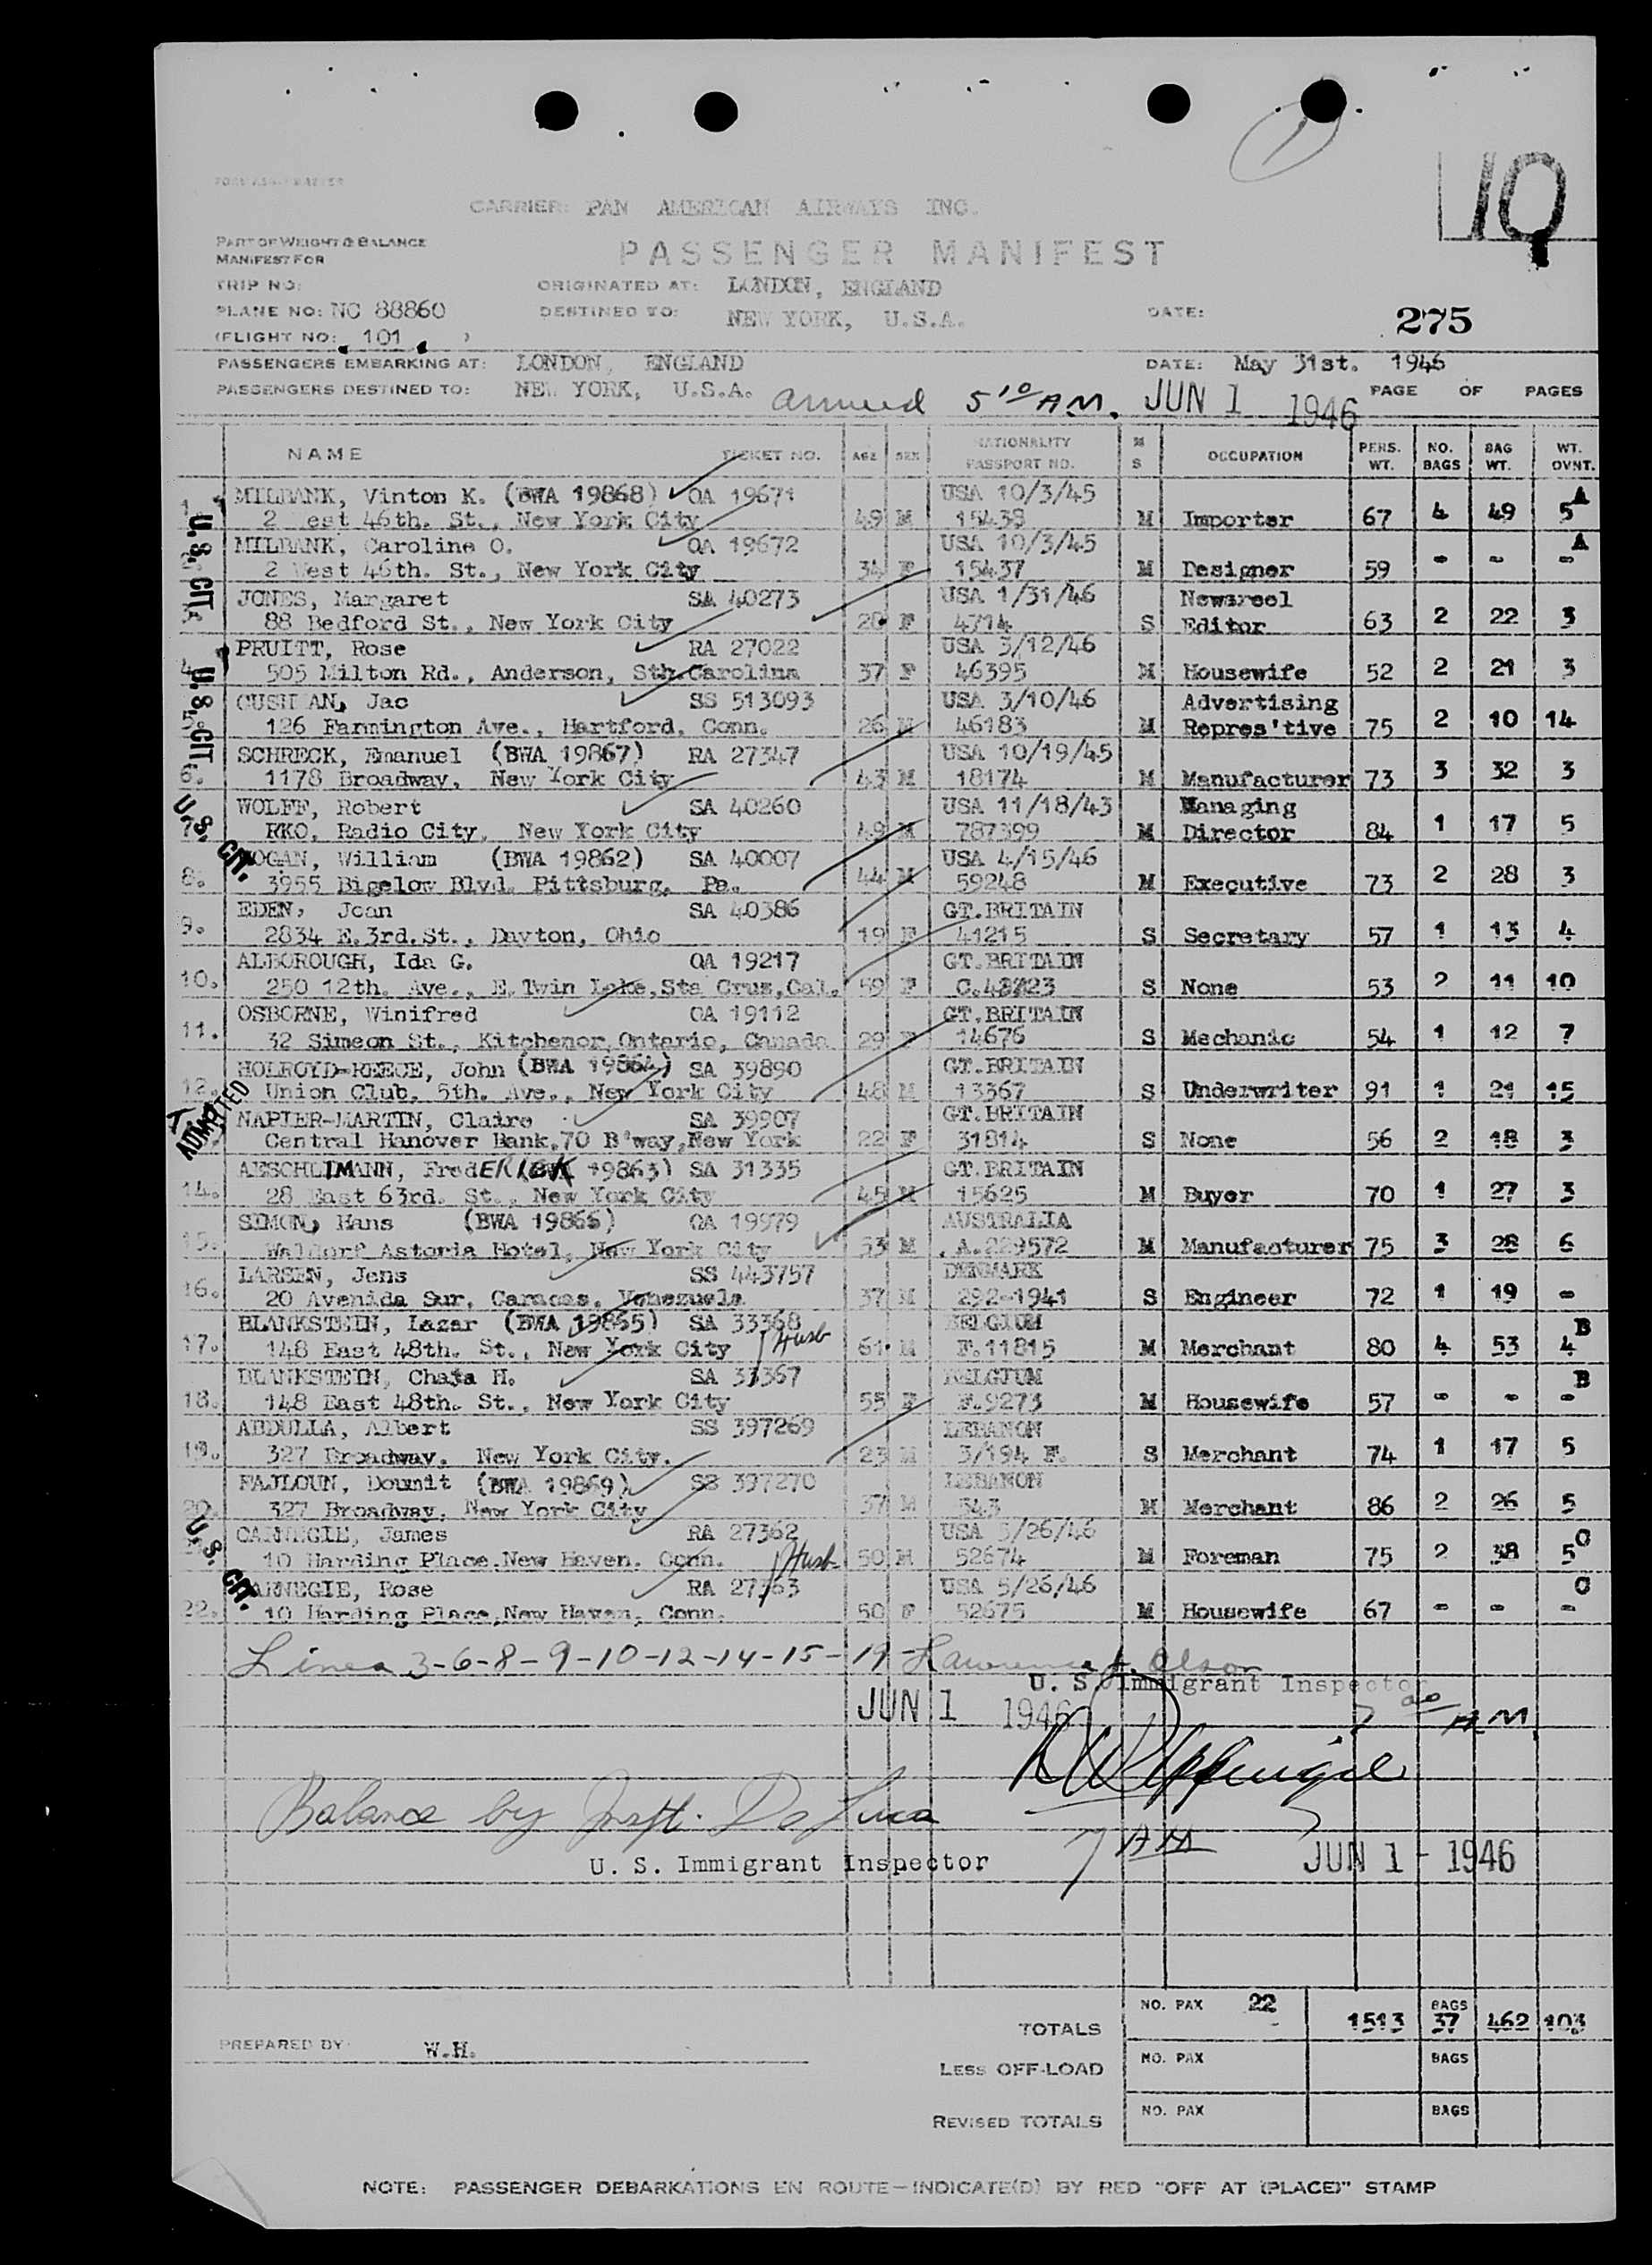 1
10
CARRIER: PAN AMERICAN AIRWAYS INC.
PART OF WEIGHT & BALANCE
MANIFEST FOR
PASSENGER MANIFEST
TRIP NO:
ORIGINATED AT: LONDON, ENGLAND
PLANE NO: NC 88860
DESTINED TO: NEW YORK, U.S.A.
DATE:
275
(FLIGHT NO: 101 )
PASSENGERS EMBARKING AT: LONDON, ENGLAND DATE: May 31st. 1946
PASSENGERS DESTINED TO: NEW YORK, U.S.A. arrived 5 10 A.M. JUN 1 1946 PAGE OF PAGES
NAME TICKET NO. AGE SEX NATIONALITY PASSPORT NO. M S OCCUPATION PERS. WT. NO. BAGS BAG WT. WT. OVNT.
U.S. CIT.
1. MILBANK, Vinton K. (BWA 19868) OA 19671 USA 10/3/45 A
2 West 46th. St., New York City 49 M 15438 M Importer 67 4 49 5
MILBANK, Caroline O. OA 19672 USA 10/3/45 A
2 West 46th. St., New York City 34 F 15437 M Designer 59 - - -
JONES, Margaret SA 40273 USA 1/31/46 Newsreel
88 Bedford St., New York City 28 F 4714 S Editor 63 2 22 3
U.S. CIT.
PRUITT, Rose RA 27022 USA 3/12/46
4. 505 Milton Rd., Anderson, Sth.Carolina 37 F 46395 M Housewife 52 2 21 3
CUSHMAN, Jac SS 513093 USA 3/10/46 Advertising
5. 126 Farmington Ave., Hartford, Conn. 26 M 46183 M Repres'tive 75 2 10 14
SCHRECK, Emanuel (BWA 19867) RA 27347 USA 10/19/45
6. 1178 Broadway, New York City 43 M 18174 M Manufacturer 73 3 32 3
U.S. CIT.
WOLFF, Robert SA 40260 USA 11/18/43 Managing
7. RKO, Radio City, New York City 49 M 787399 M Director 84 1 17 5
HOGAN, William (BWA 19862) SA 40007 USA 4/15/46
8. 3955 Bigelow Blvd. Pittsburg, Pa. 44 M 59248 M Executive 73 2 28 3
EDEN, Joan SA 40386 GT.BRITAIN
9. 2834 E.3rd.St., Dayton, Ohio 19 F 41215 S Secretary 57 1 13 4
ALBOROUGH, Ida G. OA 19217 GT.BRITAIN
10. 250 12th. Ave., E.Twin Lake,Sta Cruz,Cal. 59 F S None 53 2 11 10
OSBORNE, Winifred OA 19112 GT.BRITAIN
11. 32 Simeon St., Kitchenor,Ontario, Canada 29 F 14676 S Mechanic 54 1 12 7
HOLROYD-REECE, John (BWA 19864) SA 39890 GT.BRITAIN
12. Union Club, 5th. Ave., New York City 48 M 13367 S Underwriter 91 1 21 15
ADMITTED
NAPIER-MARTIN, Claire SA 39907 GT.BRITAIN
Central Hanover Bank,70 B'way,New York 22 F 31814 S None 56 2 18 3
AESCHLIMANN, FredERICK 19863) SA 31335 GT.BRITAIN
14. 28 East 63rd. St., New York City 45 M 15625 M Buyer 70 1 27 3
SIMON, Hans (BWA 19866) OA 19979 AUSTRALIA
15. Waldorf Astoria Hotel, New York City 53 M A.229572 M Manufacturer 75 3 28 6
LARSEN, Jens SS 443757 DENMARK
16. 20 Avenida Sur, Caracas, Venezuela 37 M 292-1941 S Engineer 72 1 19 -
BLANKSTEIN, Lazar (BWA 19865) SA 33368 BELGIUM B
17. 148 East 48th. St., New York City Husb 61 M F.11815 M Merchant 80 4 53 4
BLANKSTEIN, Chaja H. SA 33367 BELGIUM B
18. 148 East 48th. St., New York City 55 F F.9273 M Housewife 57 - - -
ABDULLA, Albert SS 397269 LEBANON
19. 327 Broadway, New York City. 23 M 3/194 F. S Merchant 74 1 17 5
FAJLOUN, Doumit (BWA 19869) SS 397270 LEBANON
20. 327 Broadway, New York City 37 M 343 M Merchant 86 2 26 5
U.S. CIT.
CARNEGIE, James RA 27362 USA 5/26/46 C
10 Harding Place,New Haven, Conn. Husb 50 M 52674 M Foreman 75 2 38 5
CARNEGIE, Rose RA 27363 USA 5/26/46 C
22. 10 Harding Place,New Haven, Conn. 50 F 52675 M Housewife 67 - - -
Lines 3-6-8-9-10-12-14-15-19 Lawrence A. Olson
U. S. Immigrant Inspector
JUN 1 1946 7 00 A.M.
Balance by Inspt. De Luca
7 AM
U. S. Immigrant Inspector JUN 1 - 1946
NO. PAX 22 BAGS
TOTALS 1513 37 462 103
PREPARED BY W.H.
LESS OFF-LOAD NO. PAX BAGS
REVISED TOTALS NO. PAX BAGS
NOTE: PASSENGER DEBARKATIONS EN ROUTE—INDICATE(D) BY RED "OFF AT (PLACE)" STAMP